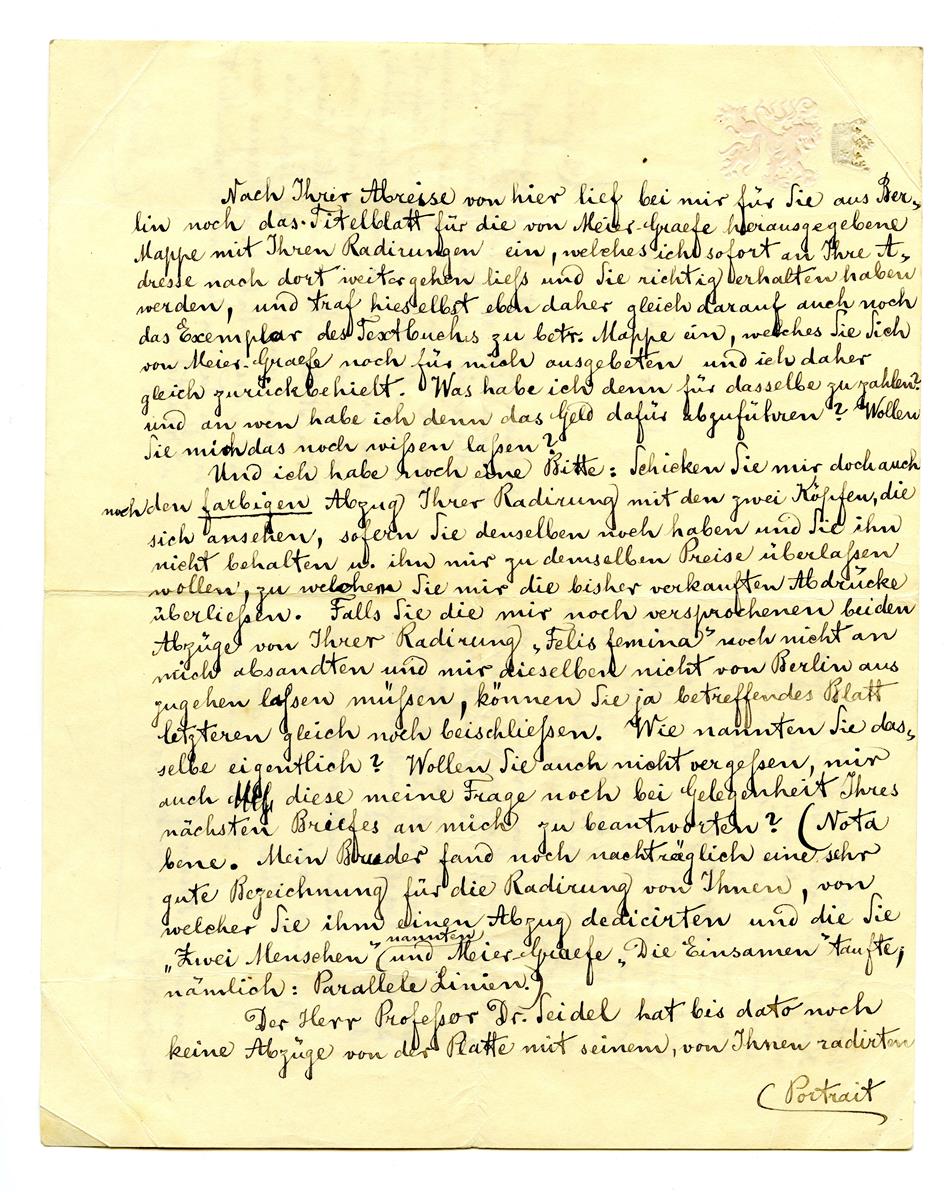 Nach Ihrer Abreise von hier lief bei mir für Sie aus Ber-
lin noch das Titelblatt für die von Meier-Graefe herausgegebene
Mappe mit Ihren Radirungen ein, welches ich sofort an Ihre A-
dresse nach dort weitergehen ließ und Sie richtig erhalten haben
werden, und traf hieselbst eben daher gleich darauf auch noch
das Exemplar des Textbuchs zu betr. Mappe ein, welches Sie Sich
von Meier-Graefe noch für mich ausgebeten und ich daher
gleich zurückbehielt. Was habe ich denn für dasselbe zu zahlen?
und an wen habe ich denn das Geld dafür abzuführen? Wollen
Sie mich das noch wißen laßen?
Und ich habe noch eine Bitte: Schicken Sie mir doch auch
noch den farbigen Abzug Ihrer Radirung mit den zwei Köpfen, die
sich ansehen, sofern Sie denselben noch haben und Sie ihn
nicht behalten u. ihn mir zu demselben Preise überlaßen
wollen, zu welchem Sie mir die bisher verkauften Abdrücke
überließen. Falls Sie die mir noch versprochenen beiden
Abzüge von Ihrer Radirung „Felis femina" noch nicht an
mich absandten und mir dieselben nicht von Berlin aus
zugehen laßen müßen, können Sie ja betreffendes Blatt
letzteren gleich noch beischließen. Wie nannten Sie das-
selbe eigentlich? Wollen Sie auch nicht vergeßen, mir
auch diese meine Frage noch bei Gelegenheit Ihres
nächsten Briefes an mich zu beantworten? (Nota
bene. Mein Bruder fand noch nachträglich eine sehr
gute Bezeichnung für die Radirung von Ihnen, von
welcher Sie ihm einen Abzug dedicirten und die Sie
„Zwei Menschen" nannten und Meier-Graefe „Die Einsamen" taufte,
nämlich: Parallele Linien.)
Der Herr Profeßor Dr. Seidel hat bis dato noch
keine Abzüge von der Platte mit seinem, von Ihnen radirten
(Portrait